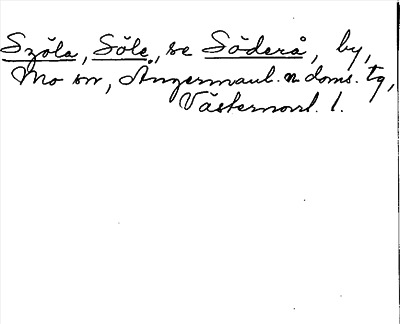 Szöla, Söle, se Söderå, by,
Mo sn, Ångermanl. n. doms. tg,
Västernorrl. l.